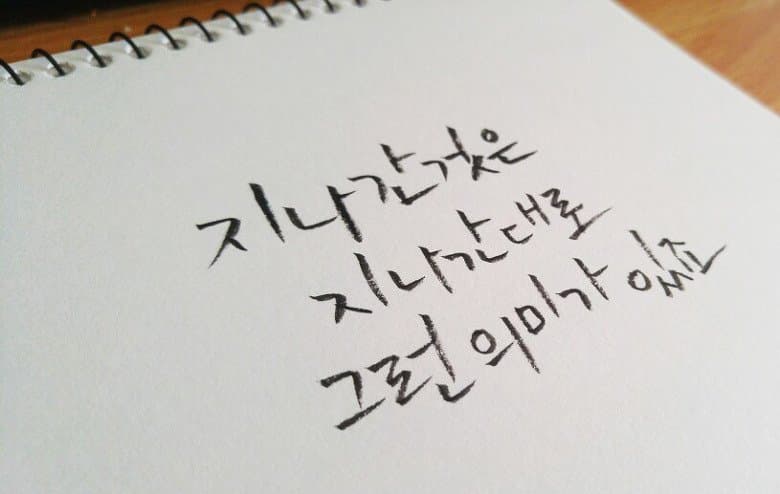 지나간것은
지나간대로
그런 의미가 있죠